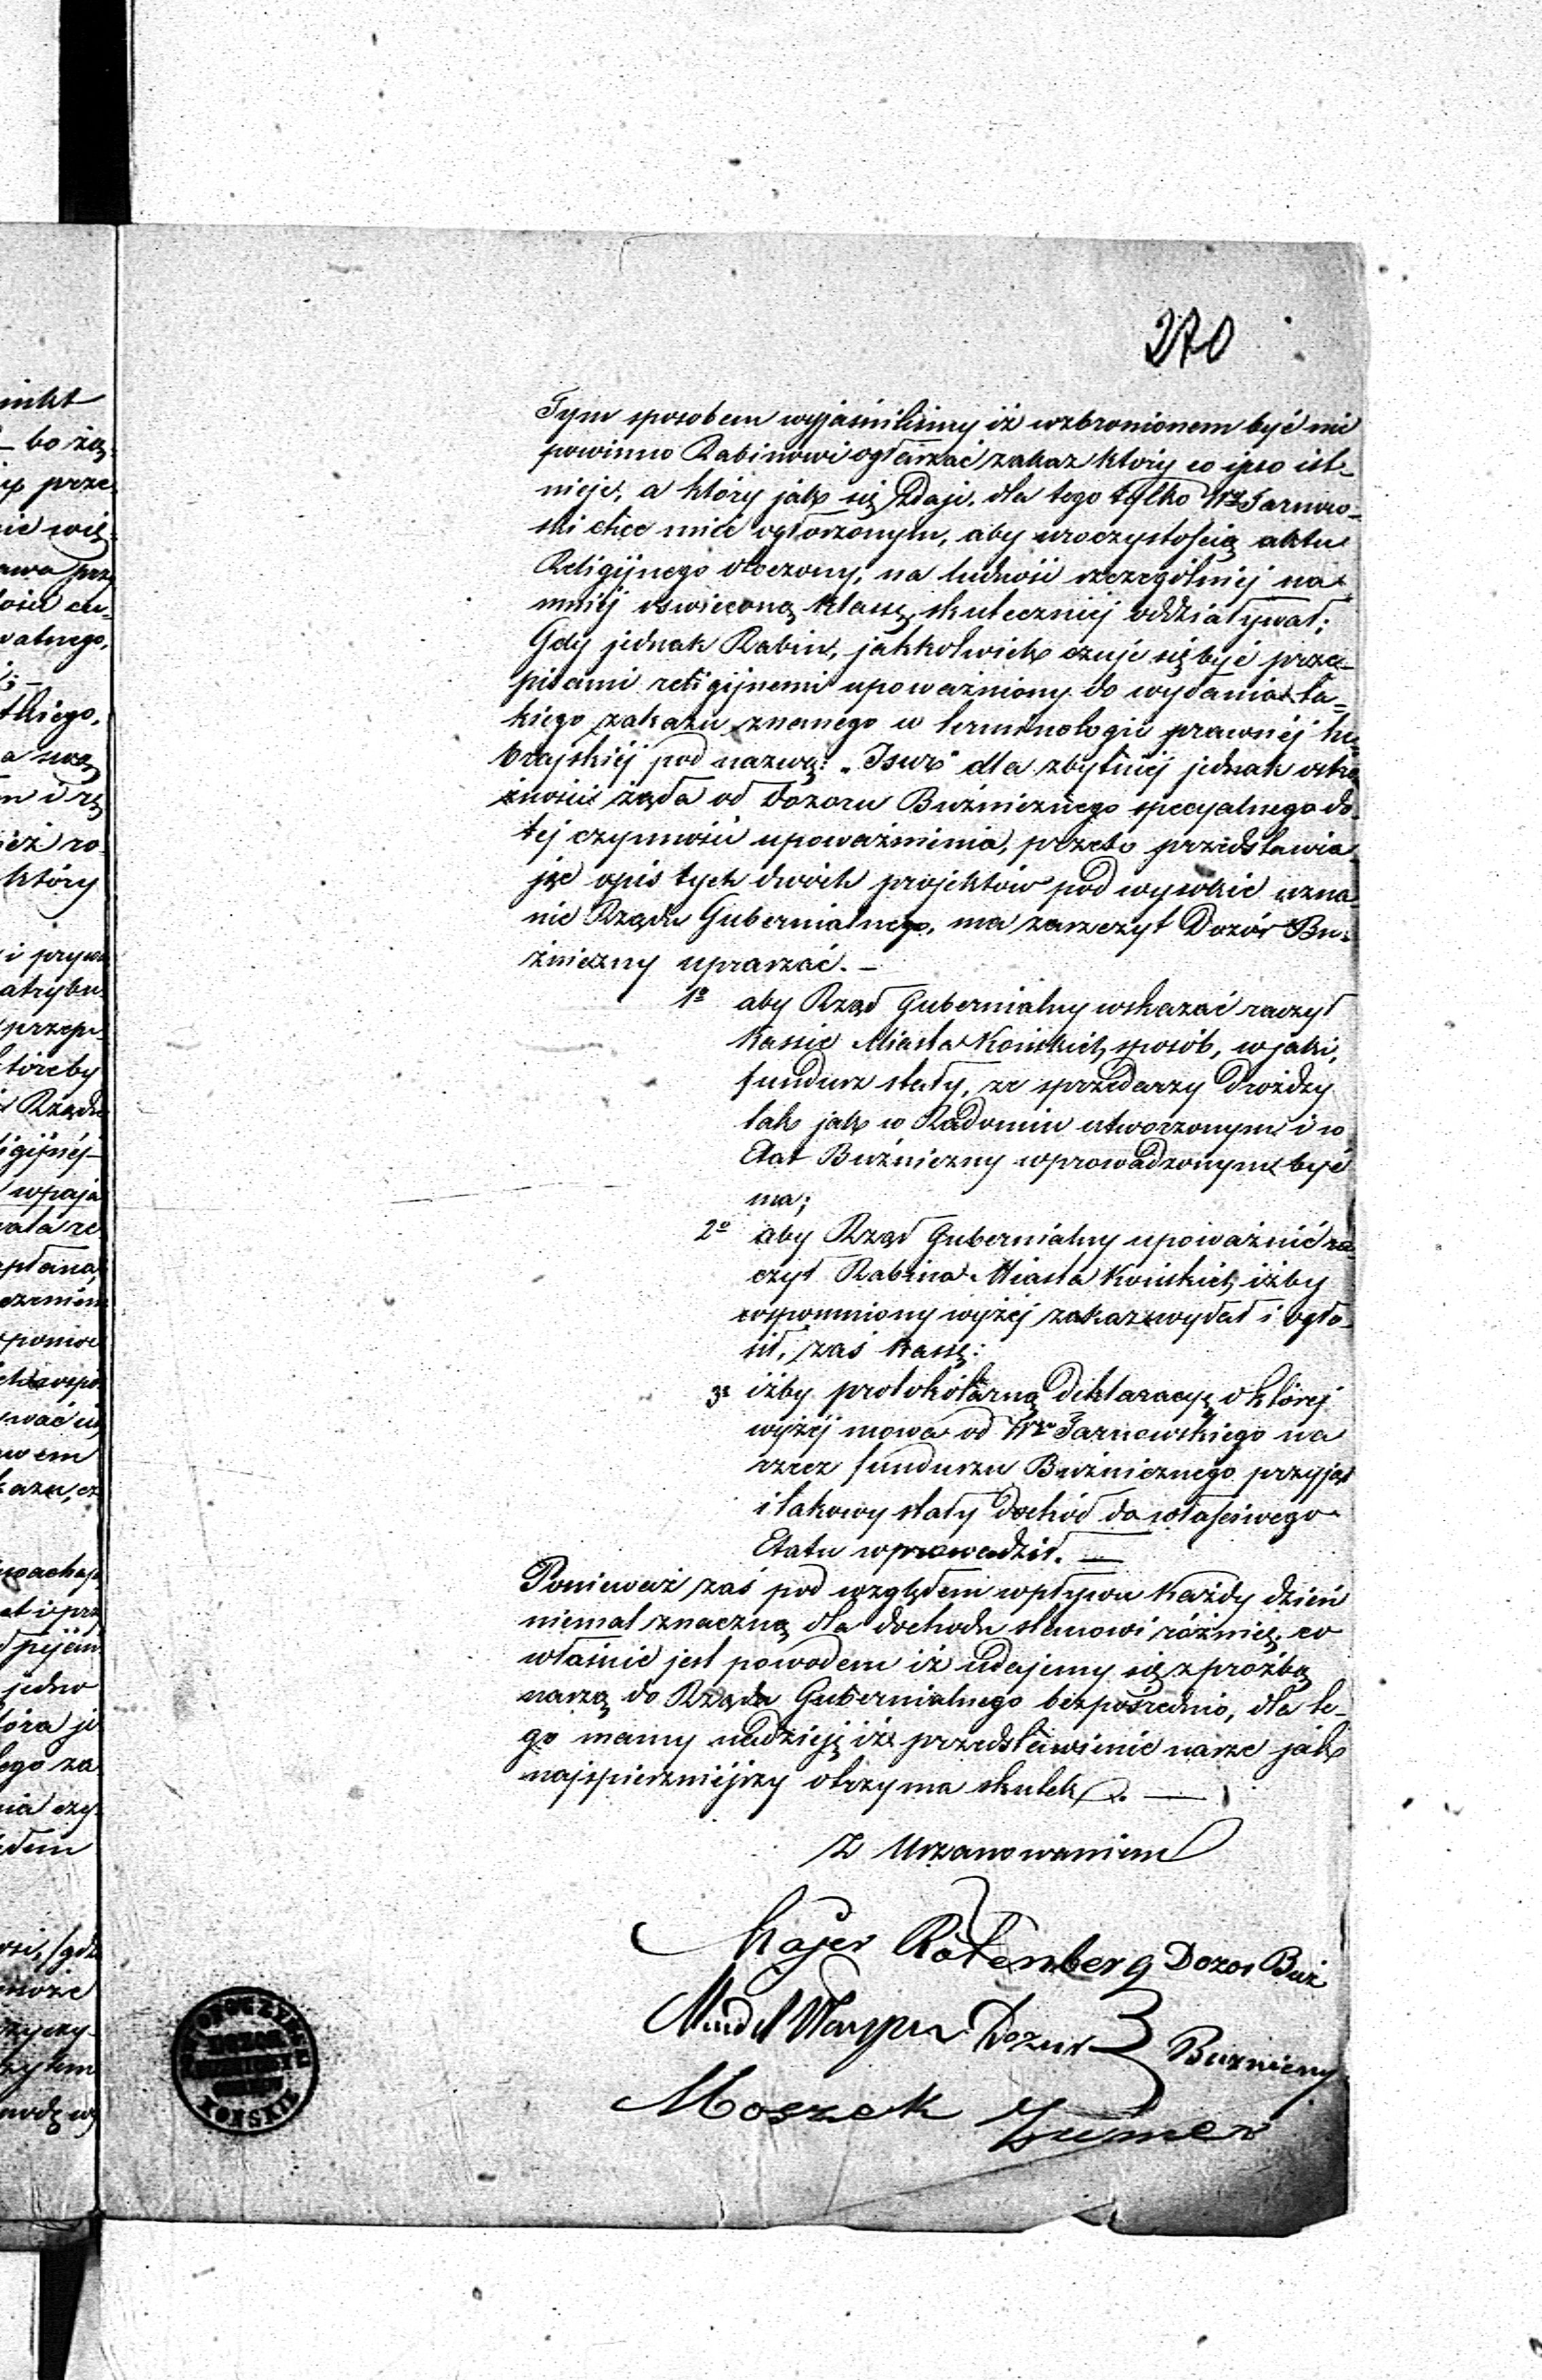 270
Tym sposobem wyjaśniliśmy iż wzbronionem być nie
powinno Rabinowi ogłaszać zakaz który eo ipso ist-
nieje, a który jak się zdaje, dla tego tylko Wży Tarnow-
ski chce mieć ogłoszonym, aby uroczystością aktu
Religijnego otoczony, na ludność szczególniej na
mniej oswieconą klassę skuteczniej oddziaływał;
Gdy jednak Rabin, jakkolwiek czuje się być prze-
pisami religijnemi upoważniony do wydania ta-
kiego zakazu znanego w terminologii prawnéj he-
brajskiéj pod nazwą: „Isur" dla zbytniéj jednak ostro
żności żąda od Dozoru Bużnicznego specyalnego do
téj czynności upoważnienia, przeto przedstawia
jąc opis tych dwóch projektów pod wysokie uzna
nie Rządu Gubernialnego, ma zaszczyt Dozór Bu-
żniczny upraszać. —
1o aby Rząd Gubernialny wskazać raczył
Kassie Miasta Końskich, sposób, w jaki,
fundusz stały, ze sprzedarzy Drożdży
tak jak w Radomiu utworzonym i w
Etat Bużniczny wprowadzonym być
ma;
2o aby Rząd Gubernialny upoważnić ra-
czył Rabina Miasta Końskich, iżby
wspomniony wyżej zakaz wydał i ogło-
sił, zaś Kassę:
3o iżby protokólarną deklaracyę o któréj
wyżéj mowa od Wgo Tarnowskiego na
rzecz funduszu Bużnicznego przyjął
i takowy stały dochód do właściwego
Etatu wprowadził. —
Ponieważ zaś pod względem wpływu każdy dzień
niemal znaczną dla dochodu stanowi różnicę, co
właśnie jest powodem iż udajemy się z prożbą
naszą do Rządu Gubernialnego bezpośrednio, dla te-
go mamy nadzieję iż przedstawienie nasze jak
najspieszniejszy otrzyma skutek. —
Z Uszanowaniem
Majer Rotenberg Dozor Buż
Dozur Buzniczny
Moszek
KOŃSKIE